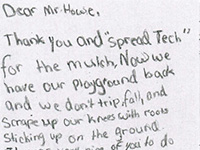 Dear Mr. Howe,
Thank you and "Spread Tech"
for the mulch, Now we
have our playground back
and we don't trip, fall, and
scrape up our knees with roots
sticking up on the ground.
of you to do